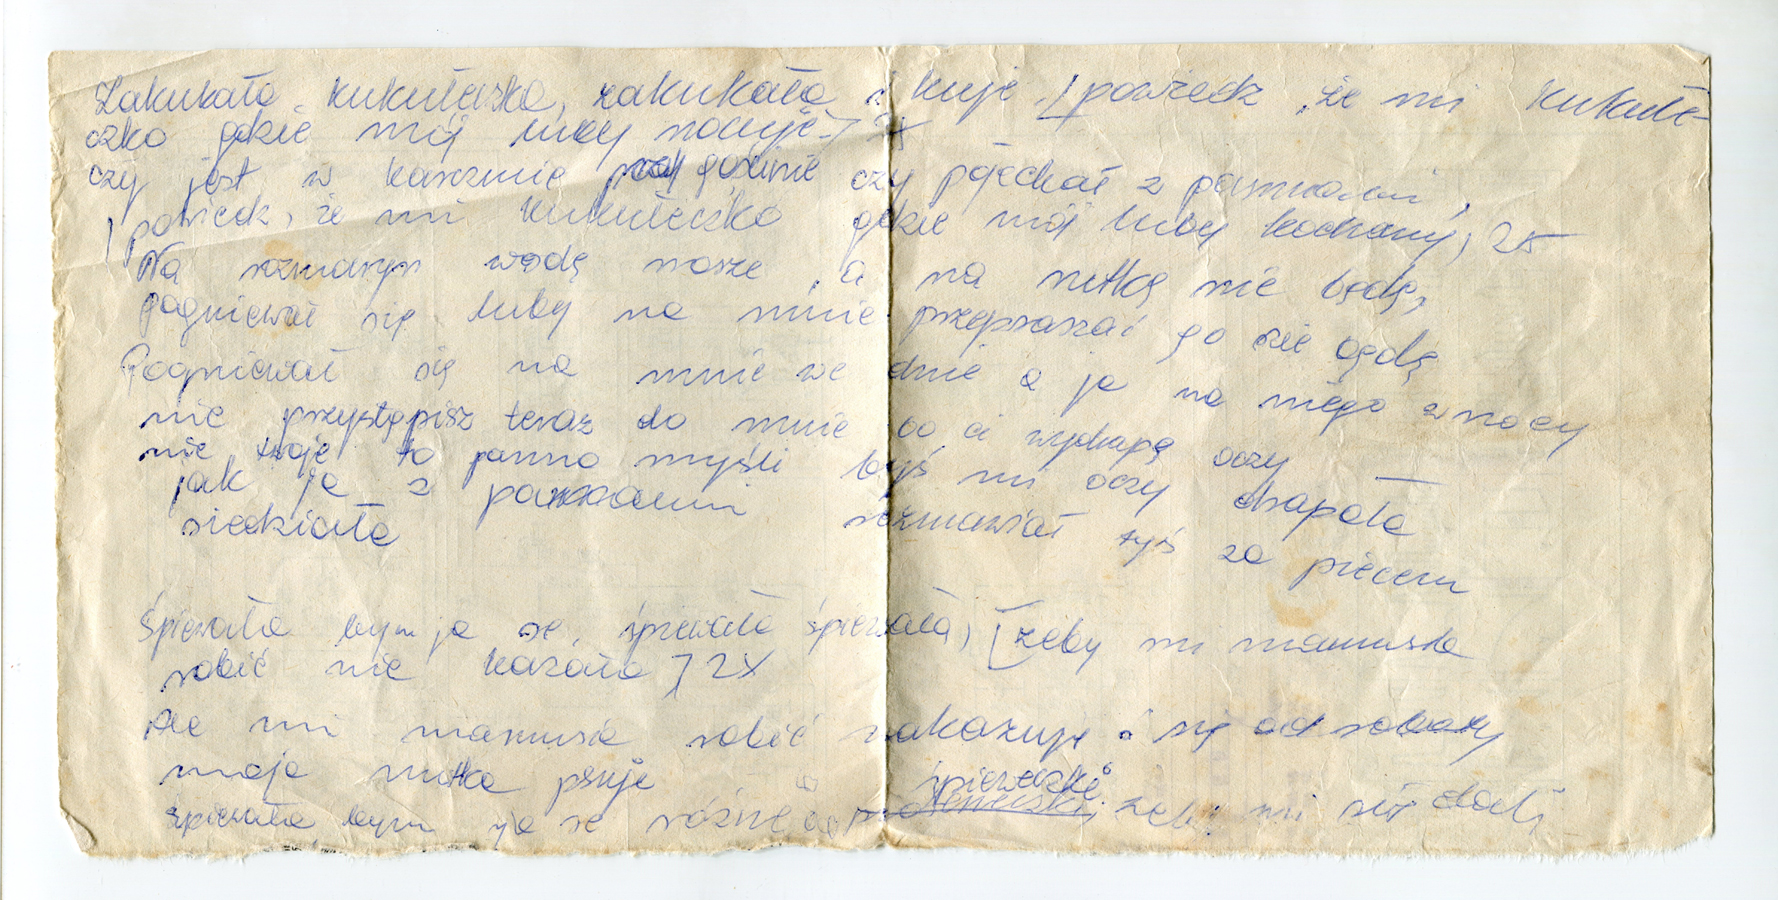 Zakukała kukułeczka, zakukała i kuje, [powiedz że mi kukułe-
czko gdzie mój luby nocuje] 2x
czy jest w karczmie godzinie czy pojechał z pannami,
[powiedz, że mi kukułeczko gdzie mój luby kochany, 2x
Na rozmaryn wodę nosze, a na nutkę nie będę,
pogniewał się luby na mnie przepraszać go nie będę
Pogniewał się na mnie we dnie a ja na niego w nocy
nie przystąpisz teraz do mnie bo ci wydrapę oczy
nie twoje to panno myśli byś mi oczy drapała
jak ja z pannami rozmawiał tyś za piecem
siedziała
Śpiewała bym ja se, śpiewała śpiewała, [żeby mi mamusia
robić nie kazała] 2x
Ale mi mamusia robić nakazuje i się od roboty
moja nutka psuje
śpiewała bym ja se różne śpiweczki żeby mi sił dali